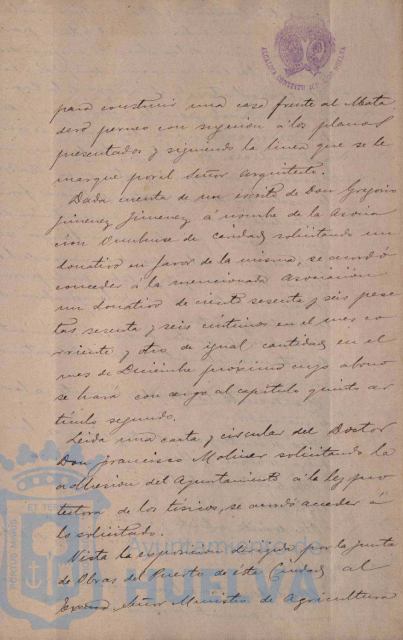 para construir una casa frente al Mata
dero
con sujecion á los planos
presentados y siguiendo la linea que se le
marque por el Señor Arquitecto.
Dada cuenta de un escrito de Don Gregorio
Jimenez Jimenez á nombre de la Asocia
cion Onubense de Caridad solicitando un
donativo en favor de la misma, se acordó
conceder á la mencionada Asociación
un donativo de ciento sesenta y seis pese
tas sesenta y seis céntimos en el mes co
rriente y otro de igual cantidad en el
mes de Diciembre próximo cuyo abono
se hará con cargo al capítulo quinto ar
tículo segundo.
Leida una carta y circular del Doctor
Don Francisco Moliner solicitando la
adhesion del Ayuntamiento á la ley pro
tectora de los tísicos, se acordó acceder á
lo solicitado.
Vista la exposicion dirigida por la Junta
de Obras del Puerto de esta Ciudad al
Señor Ministro de Agricultura
Ayuntamiento de
HUELVA